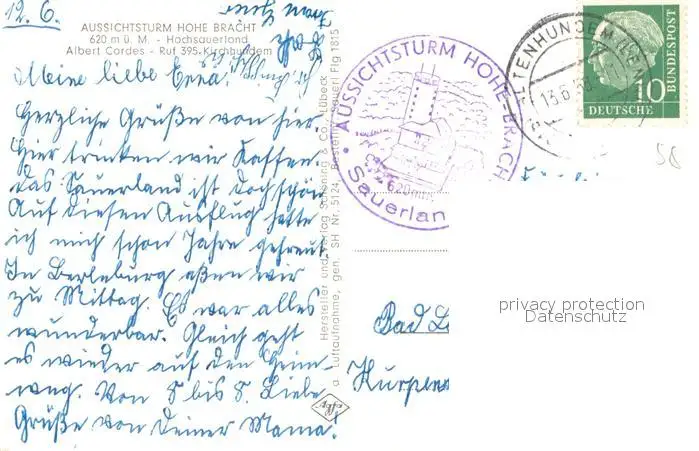 12. 6.
AUSSICHTSTURM HOHE BRACHT
620 m ü. M. - Hochsauerland
Albert Cordes - Ruf 395-Kirchhundem
Meine liebe Erna!
Herzliche Grüße von hier.
Hier trinken wir Kaffee.
Das Sauerland ist doch schön
Auf diesen Ausflug hatte
ich mich schon Jahre gefreut.
In Berleburg aßen wir
zu Mittag. Es war alles
wunderbar. Gleich geht
es wieder auf den Heim-
weg. Von 8 bis 8. Liebe
Grüße von Deiner Mama!
Hersteller und Verlag Schöning & Co., Lübeck
a. Luftaufnahme, gen. SH Nr. 5124, Plg 1815
Agfa
AUSSICHTSTURM HOHE BRACHT
620m
Sauerlan
ALTENHUNDEM
13.6.58
10
DEUTSCHE
BUNDESPOST
58
Bad
privacy protection
Datenschutz